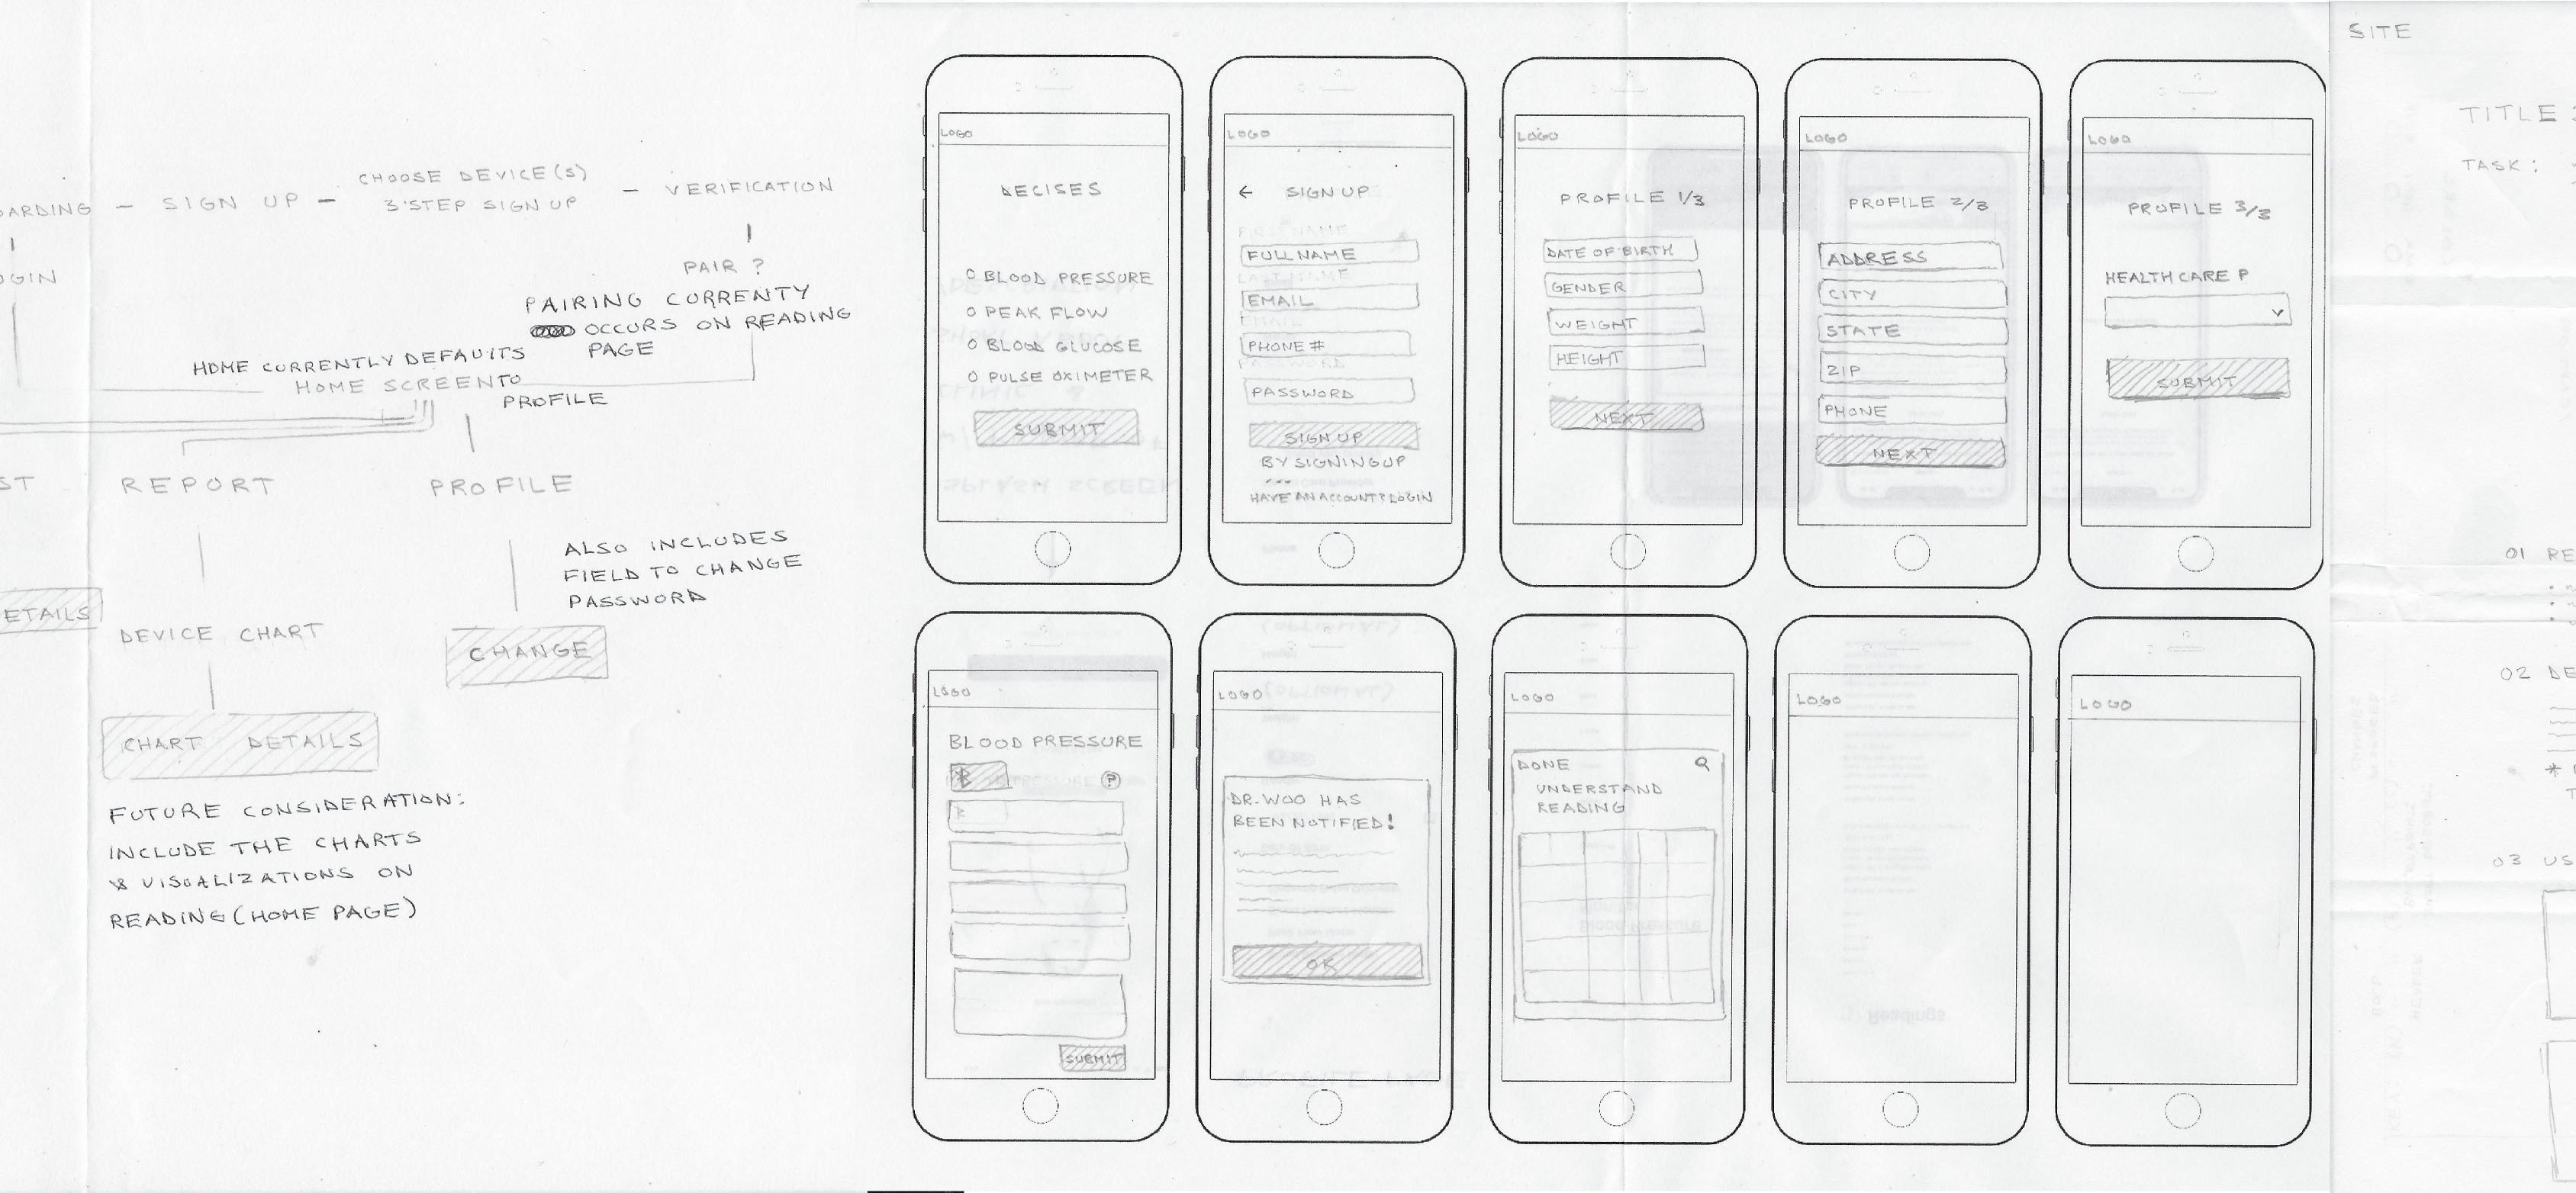 ARDING — SIGN UP — CHOOSE DEVICE(S) — VERIFICATION
3·STEP SIGN UP
OGIN
PAIR ?
PAIRING CURRENTY
OCCURS ON READING
PAGE
HOME CURRENTLY DEFAUITS
HOME SCREEN TO
PROFILE
ST
REPORT
PROFILE
ALSO INCLUDES
FIELD TO CHANGE
PASSWORD
ETAILS
DEVICE CHART
CHANGE
CHART DETAILS
FUTURE CONSIDERATION:
INCLUDE THE CHARTS
& VISUALIZATIONS ON
READING (HOME PAGE)
LOGO
DECISES
O BLOOD PRESSURE
O PEAK FLOW
O BLOOD GLUCOSE
O PULSE OXIMETER
SUBMIT
LOGO
← SIGN UP
FIRST NAME
FULL NAME
LAST NAME
EMAIL
EMAIL
PHONE #
PASSWORD
PASSWORD
SIGN UP
BY SIGNING UP
...
HAVE AN ACCOUNT? LOGIN
LOGO
PROFILE 1/3
DATE OF BIRTH
GENDER
WEIGHT
HEIGHT
NEXT
LOGO
PROFILE 2/3
ADDRESS
CITY
STATE
ZIP
PHONE
NEXT
LOGO
PROFILE 3/3
HEALTH CARE P
SUBMIT
LOGO
BLOOD PRESSURE
?
SUBMIT
LOGO
DR. WOO HAS
BEEN NOTIFIED!
OK
LOGO
DONE
UNDERSTAND
READING
LOGO
Readings
LOGO
SITE
TITLE :
TASK :
01 RE
02 DE
*
03 US